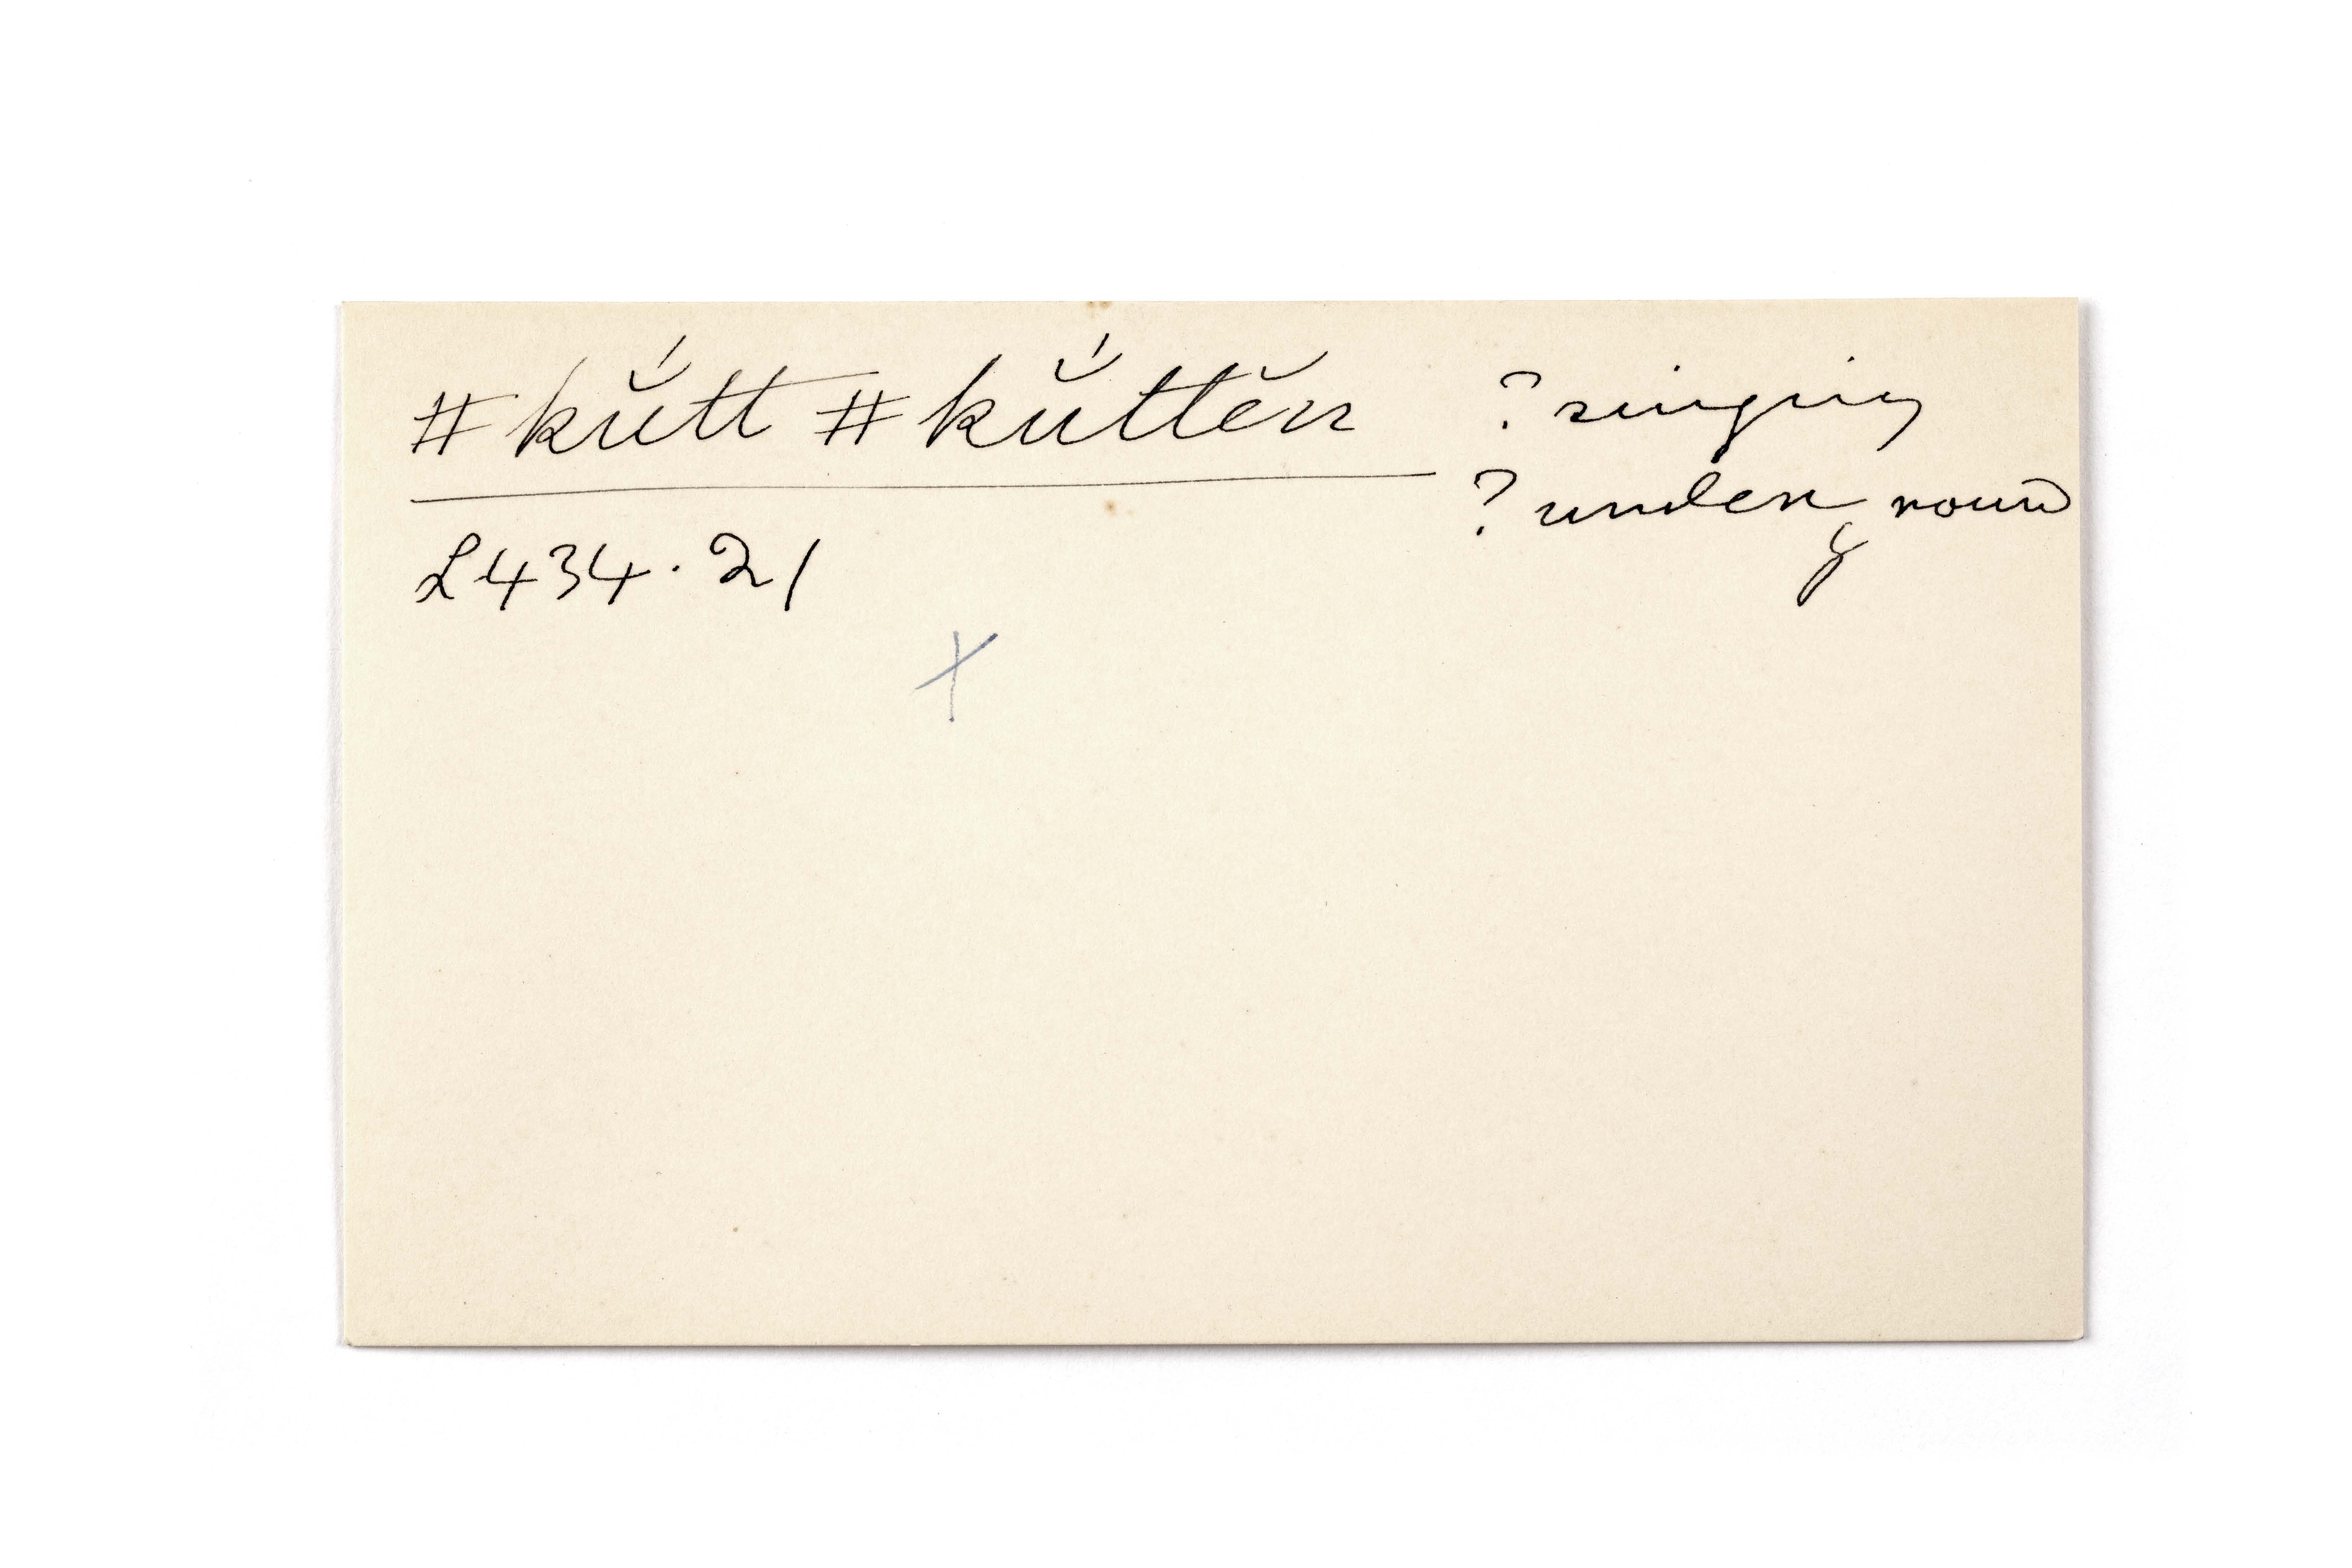 #kŭ́tt #kŭ́ttĕn ? singing
? under ground
L434.21
X